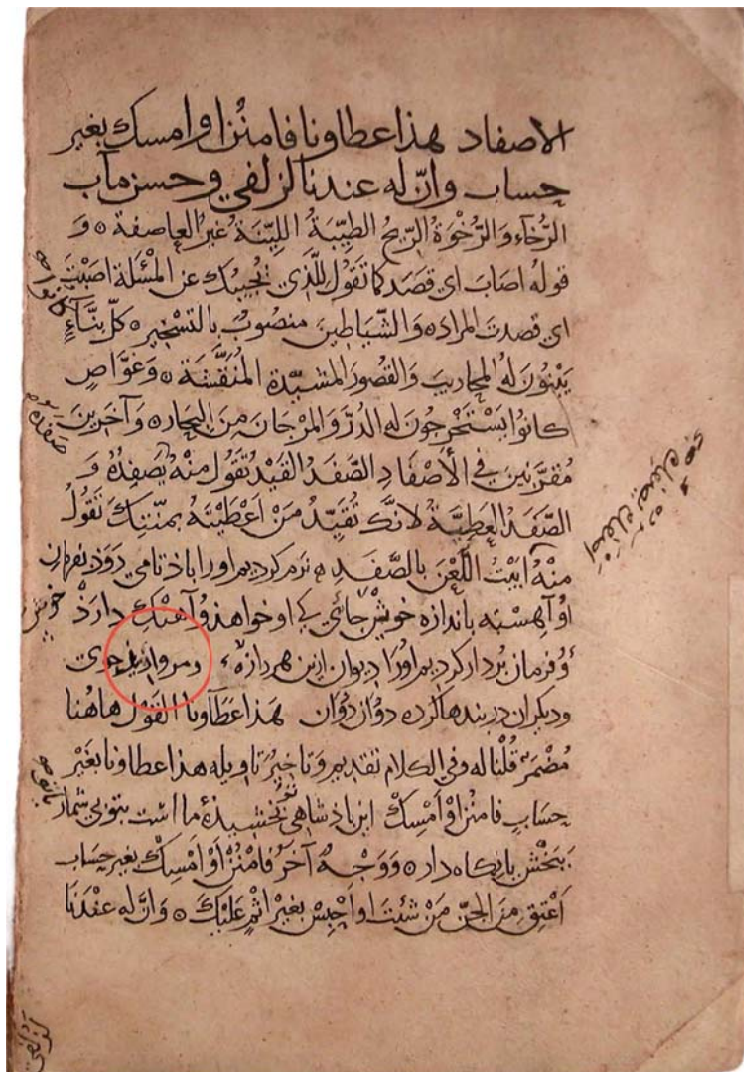 الاصفاد هذا عطاونا فامنن او امسك بغير
حساب وان له عندنا لزلفي وحسن مآب
الرُّخاء والرُّخْوَة الرّيحُ الطيّبَةُ الليّنَةُ غيرُ العاصفة ٥ وَ
قوله اصَابَ اي قَصَدَ كما تَقُول للّذي يُجيبُك عن المَسْئلة اصَبْتَ
اي قصدتَ المراد ٥ والشّياطين منصُوبٌ بالتسْخِير ٥ كلّ بنّاءٍ
يَبْنُونَ لهُ المحاريبَ وَالقُصُورَ المشيّدة المُنقّشة ٥ وَغَوّاصٍ
كانوُا يَسْتَخْرِجُونَ له الدُرَّ وَالمرْجَانَ مِنَ البِحَار ٥ وَآخَرِينَ
مُقَرّنينَ في الأَصْفَادِ الصَّفَدُ القَيْدُ تقُول منْهُ يَصْفِدُهُ وَ
الصَّفَدُ العَطيَّةُ لانّكَ تُقيّدُ مَنْ اَعْطَيْتَهُ بمنّتِكَ تَقُولُ
منْهُ اَبَيْتَ اللَّعْنَ بالصَّفَد ٥ نرم كرديم اورا باذ تامي رَوَذ بفرمان
اوُ آهِسْته باندازه خويش جائي كي او خواهذ وُ آهنك دارَدْ
وُ فرمان بُردار كرديم اورا ديوان ازين هر دازه
و مرواريد جوى
وديكران در بندها كرده دوُان دوُان هَذا عَطَاونا القَوْل هاهُنا
مُضْمَر قُلْنا له وفي الكلام تقديم وَتاخيرٌ تاويله هذا عطاونا بغَيْر
حِسَابٍ فامنُنْ اوْ اَمْسِكْ اين باذشاهي بخشيذهٔ ما است بتو بي شمار
ببَخْش يا نكاه دار ٥ وَوَجْهٌ آخَرُ فَامْنُنْ اَوْ اَمْسِكْ بغير حِسَاب
اَعْتِقْ مِنَ الجنّ مَنْ شئتَ او احْبِسْ بغَيْرِ اثْمٍ عَلَيْكَ ٥ وَانَّ له عنْدَنَا